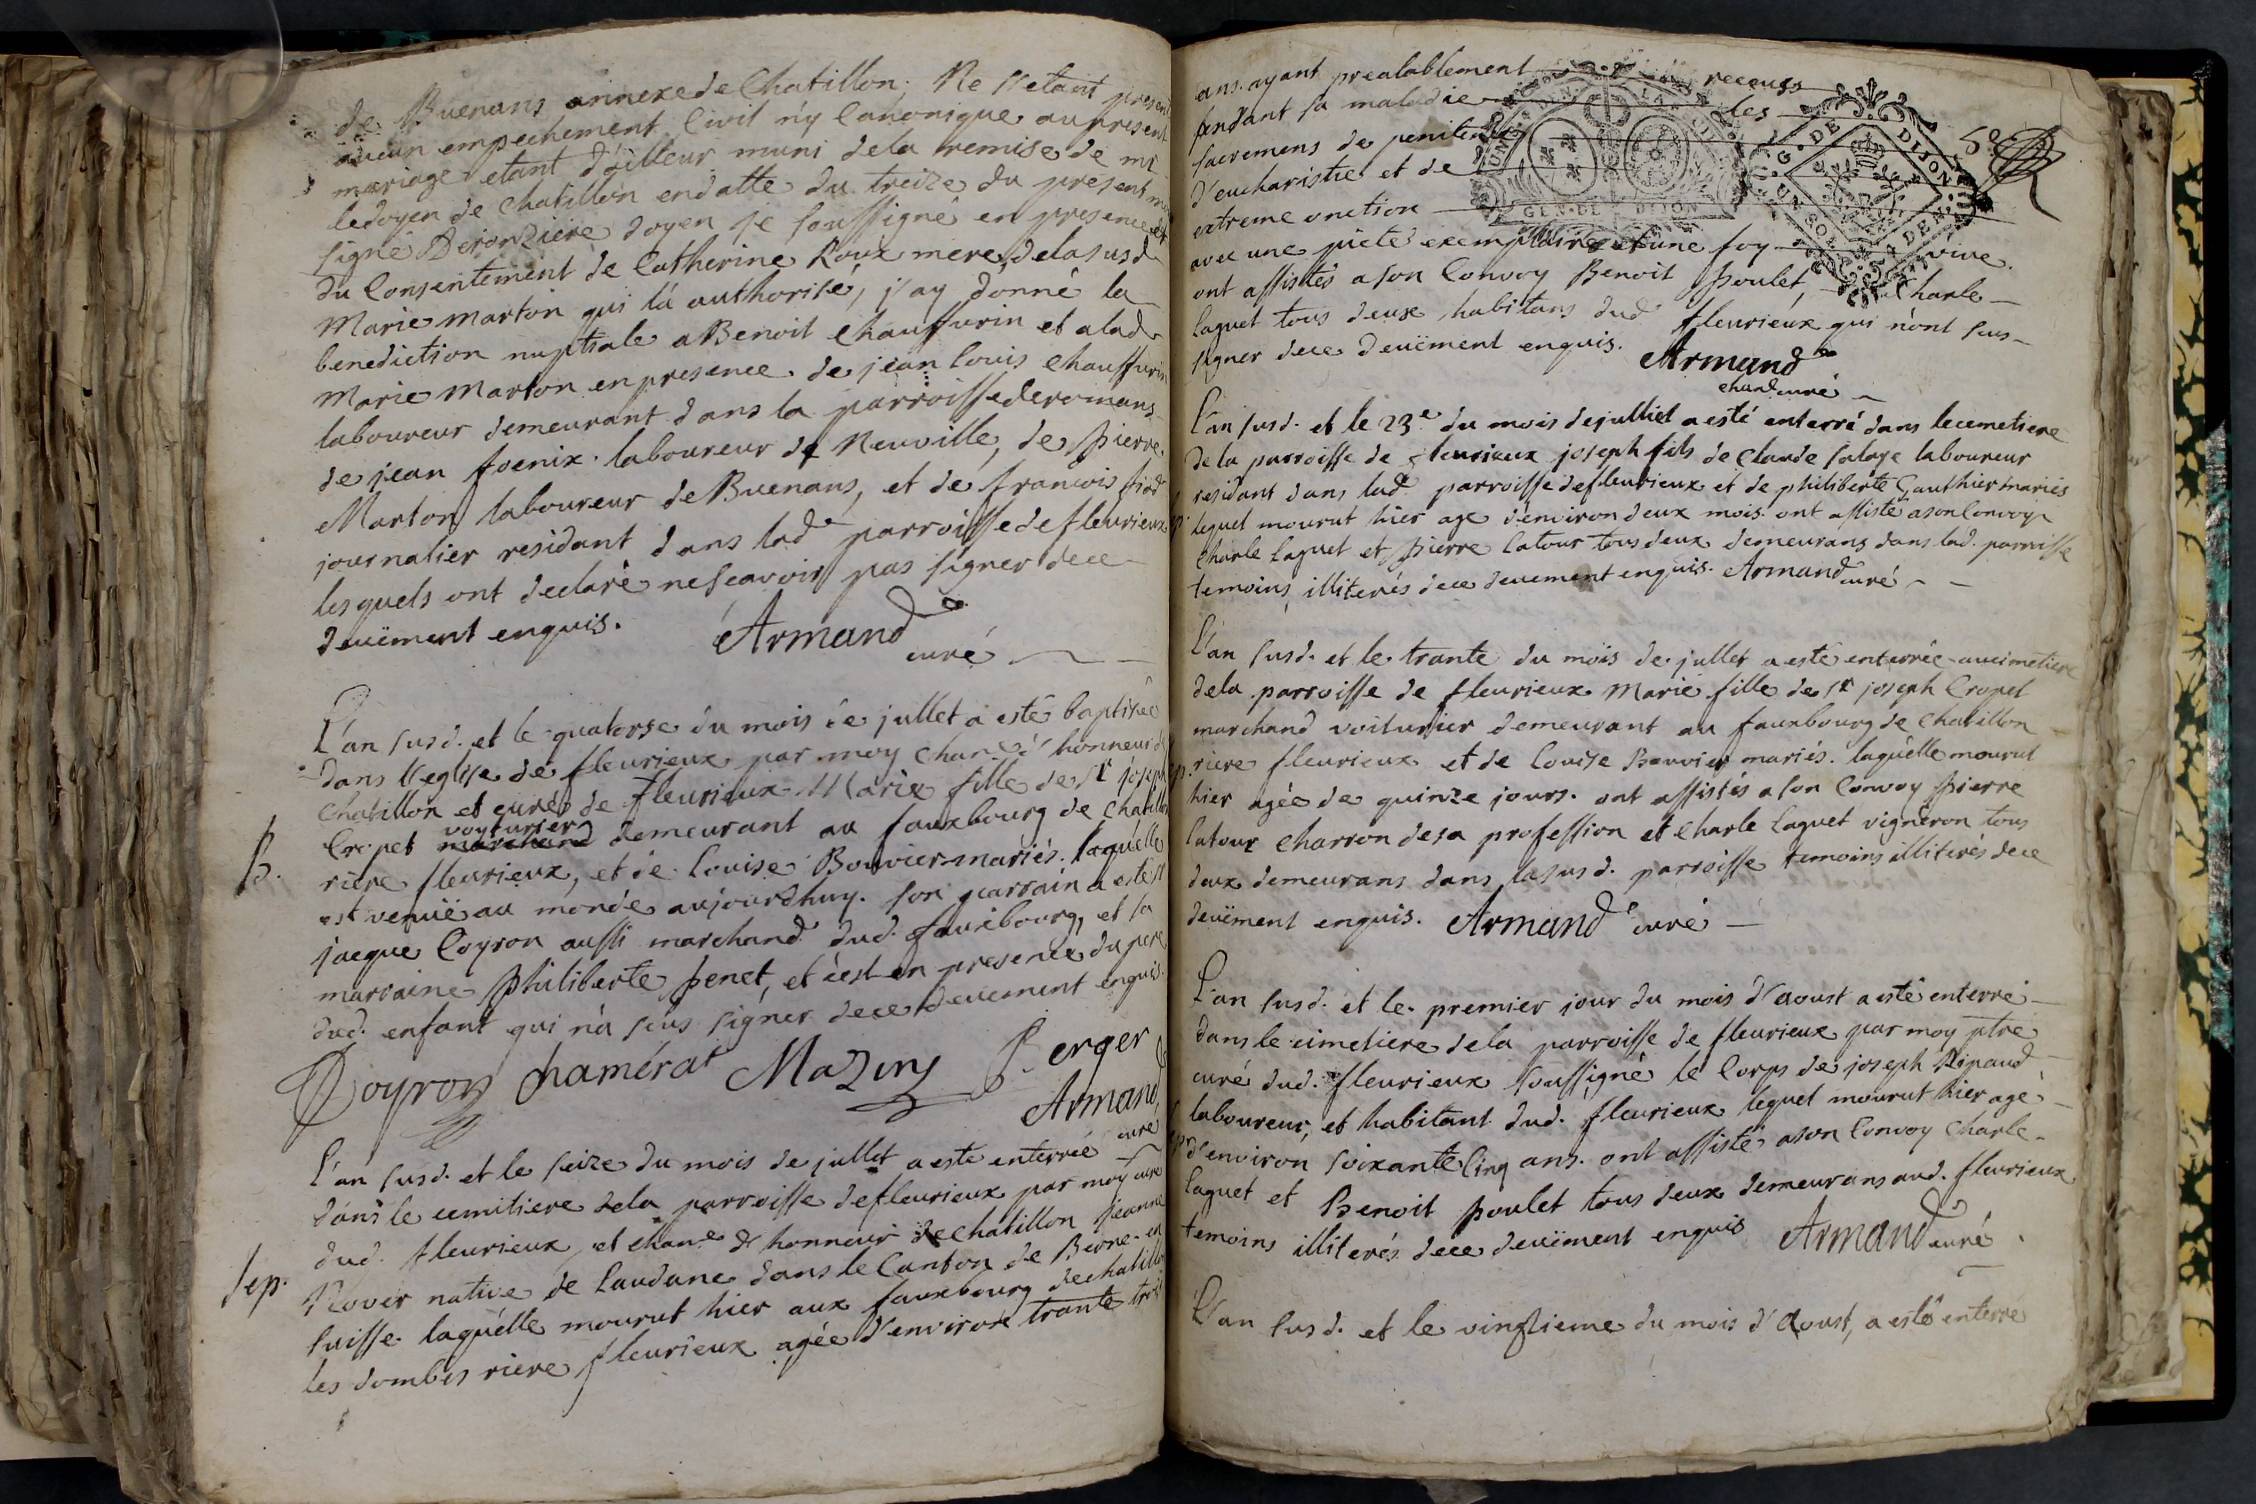 de Buenans annexe de Chatillon; Ne s'etant presenté
aucun empechement Civil n'y Canonique au present
mariage etant d'ailleur muni de la remise de mr
le doyen de chatillon en datte du treize du present mois
signé doyen je soussigné en presence et
du Consentement de Catherine Roux mere de la susd.
Marie marton qui l'a authorisé, j'ay donné la
benediction nuptiale a Benoit chauffurin et a lad.
Marie Marton en presence de jean louis chauffurin
laboureur demeurant dans la parroisse de romans
de jean foenix laboureur de Neuville, de pierre
Marton laboureur de Buenans, et de francois
journalier residant dans lad. parroisse de fleurieux
lesquels ont declaré ne scavoir pas signer de ce
deuëment enquis. Armand
curé
L'an susd. et le quatorse du mois de jullet a esté baptisée
dans l'eglise de fleurieux par moy chan.e d'honneur de
chatillon et curé de fleurieux Marie fille de Sr joseph
voyturier
B. Cropet marchand demeurant au fauxbourg de chatillon
riere fleurieux, et de Louise Bouvier mariés. laquelle
est venuë au monde aujourdhuy. son parrain a esté sr
jacque Coyron aussi marchand dud. fauxbourg, et sa
marraine philiberte penet, et c'est en presence du pere
dud. enfant qui n'a sçus signer de ce deuement enquis.
Coyron chamérat Mazuy Berger
Armand
curé
L'an susd. et le seize du mois de jullet a esté enterrée
dans le cemitiere de la parroisse de fleurieux par moy curé
dud. fleurieux, et chan.e d'honneur de chatillon jeanne
Sep. Rover native de Laudane dans le Canton de Berne en
suisse. laquélle mourut hier aux fauxbourg de chatillon
les dombes riere fleurieux agée d'environ trante trois
ans. ayant prealablement receuss
pendant sa maladie les
sacremens de penitence
d'eucharistie et de
extreme onction
UN SOL
GEN. DE DIJON
G. DE DIJON
UN SOL
avec une pieté exemplaire et une foy vive.
ont assistés a son Convoy Benoit poulet, Charle
laguet tous deux habitans dud. fleurieux qui n'ont sçus
signer de ce deuëment enquis. Armand
chan.e curé
L'an susd. et le 23.e du mois de julliet a esté enterré dans le cemetiere
de la parroisse de fleurieux joseph fils de claude salaye laboureur
residant dans lad. parroisse de fleurieux et de philiberte Gauthier mariés
lequel mourut hier age d'environ deux mois. ont assisté a son Convoy
Charle laguet et pierre latour tous deux demeurans dans lad. parroisse
temoins illiterés de ce deuement enquis. Armand curé
L'an susd. et le trante du mois de jullet a esté enterrée au cimetiere
de la parroisse de fleurieux Marie fille de sr joseph Cropet
marchand voiturier demeurant au fauxbourg de chatillon
riere fleurieux et de louise Bouvier mariés. laquélle mourut
hier agée de quinze jours. ont assistés a son Convoy pierre
latour charron de sa profession et charle laguet vigneron tous
deux demeurans dans la susd. parroisse temoins illiterés de ce
deuëment enquis. Armand curé
L'an susd. et le premier jour du mois d'aoust a esté enterré
dans le cimetiere de la parroisse de fleurieux par moy ptre
curé dud. fleurieux soussigné le Corps de joseph Ripaud
laboureur, et habitant dud. fleurieux lequel mourut hier age
d'environ soixante Cinq ans. ont assisté a son Convoy Charle
laguet et Benoit poulet tous deux demeurans aud. fleurieux
temoins illiterés de ce deuëment enquis Armand curé
L'an susd. et le vingtieme du mois d'Aoust, a esté enterré